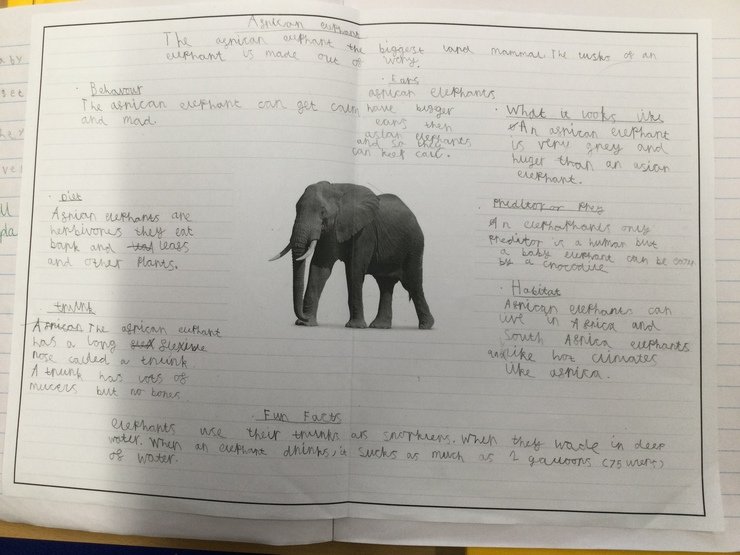 African elephant
The african elephant the biggest land mammal. The tusks of an
elephant is made out of ivory.
· Behavour
The african elephant can get calm
and mad.
· Ears
african elephants
have bigger
ears then
asian elephants
and so they
can keep cool.
· What it looks like
An african elephant
is very grey and
huger than an asian
elephant.
· Diet
African elephants are
herbivores they eat
bark and leafs
and other plants.
· Preditor or Prey
An elephaphants only
preditor is a human but
a baby elephant can be eaten
by a crocodile
· trunk
African The african elephant
has a long flexible
nose called a trunk
A trunk has lots of
mucers but no bones.
· Habitat
African elephants can
live in Africa and
South Africa elephants
and like hot climates
like africa.
· Fun Facts
Elephants use their trunks as snorklers. When they wade in deep
water. When an elephant drinks, it sucks as much as 2 galloons (75 liters)
of water.